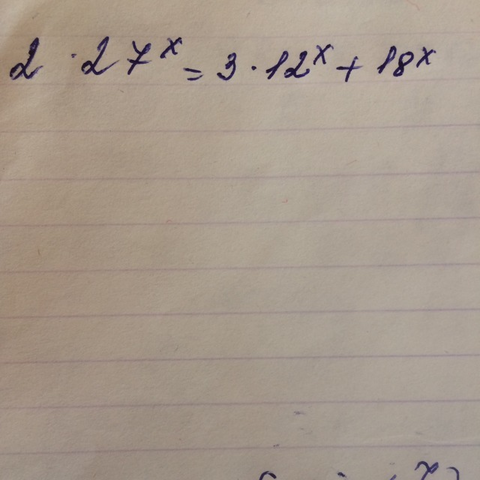 2 · 27ˣ = 3 · 12ˣ + 18ˣ